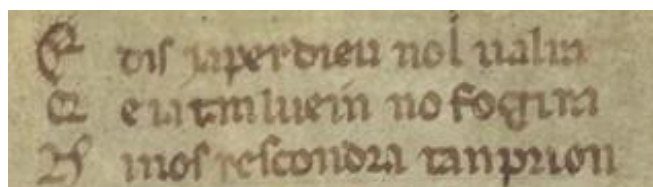 E dis japerdieu nol ualra
E ia tan luein no fogira
N inos rescondra tanprion